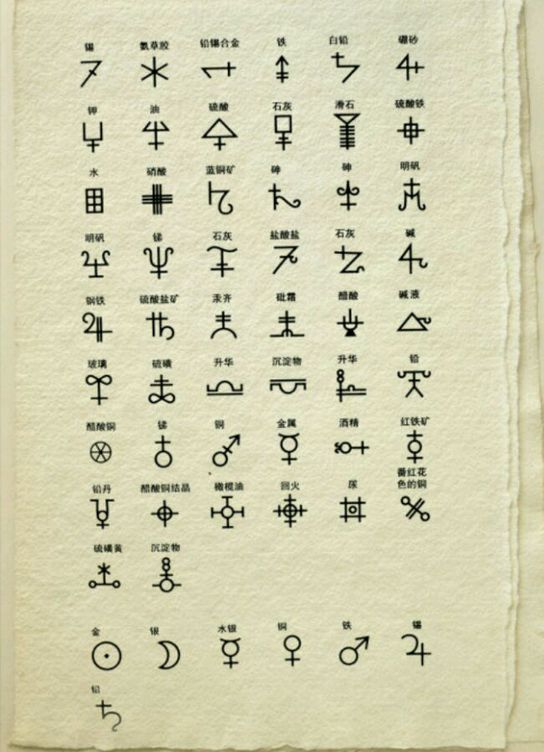 锡 氨草胶 铅锡合金 铁 白铅 硼砂
钾 油 硫酸 石灰 滑石 硫酸铁
水 硝酸 蓝铜矿 砷 砷 明矾
明矾 锑 石灰 盐酸盐 石灰 碱
钢铁 硫酸盐矿 汞齐 砒霜 醋酸 碱液
玻璃 硫磺 升华 沉淀物 升华 铅
醋酸铜 锑 铜 金属 酒精 红铁矿
铅丹 醋酸铜结晶 橄榄油 回火 尿 番红花
色的铜
硫磺黄 沉淀物
金 银 水银 铜 铁 锡
铅